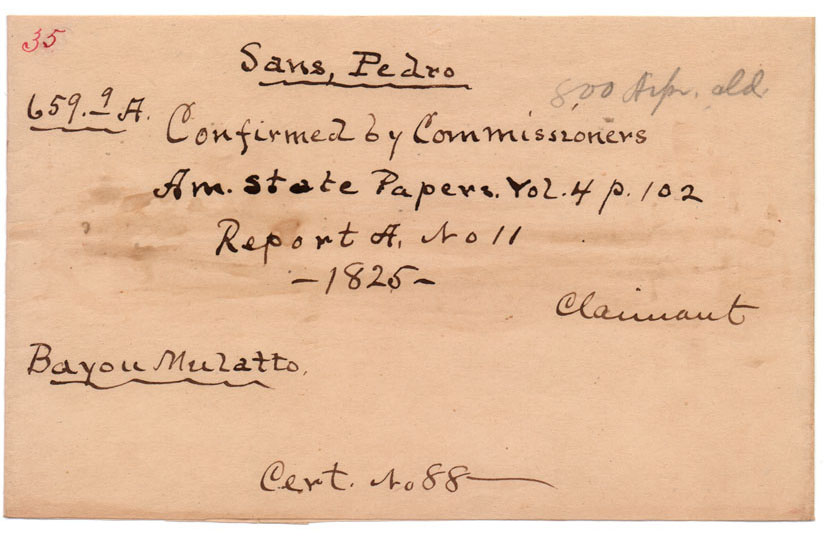 35
Sans, Pedro
800 Arp. old
659.9 A.
Confirmed by Commissioners
Am. State Papers. Vol. 4 p. 102
Report A, No 11
- 1825 -
Claimant
Bayou Mulatto.
Cert. No 88